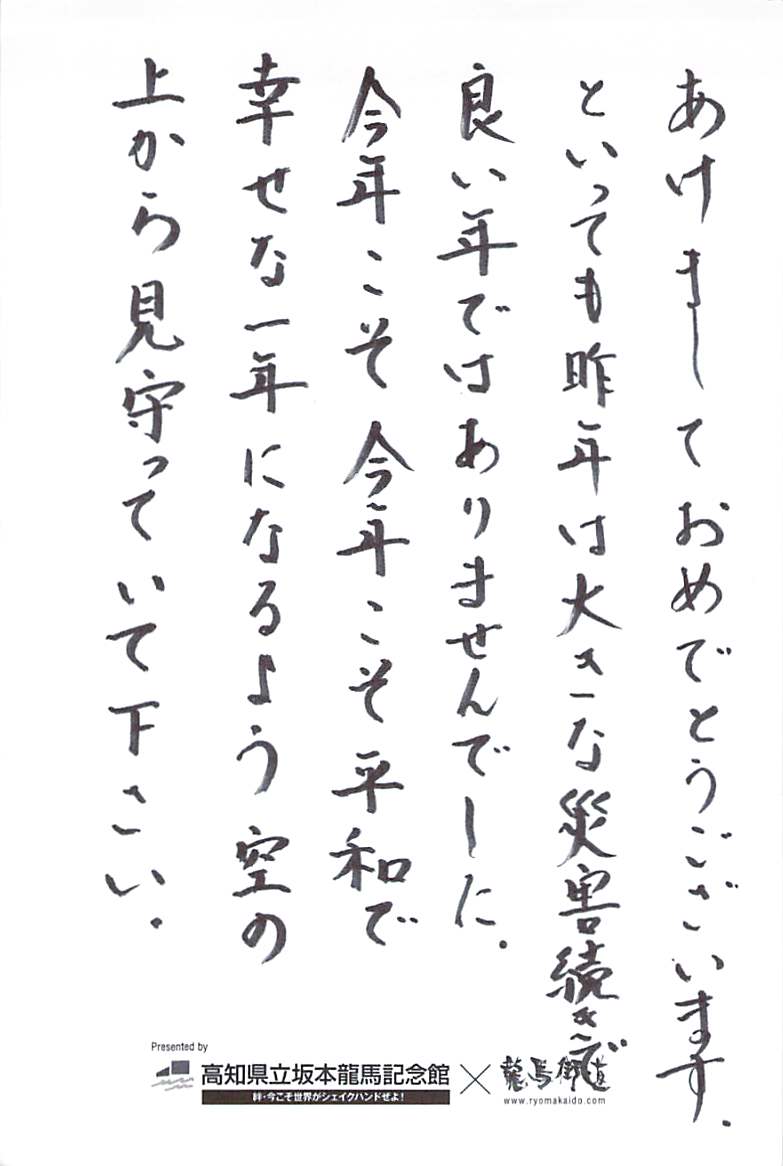 あけましておめでとうございます.
といっても昨年は大きな災害続きで
良い年ではありませんでした.
今年こそ今年こそ平和で
幸せな一年になるよう空の
上から見守っていて下さい.
Presented by
高知県立坂本龍馬記念館
絆・今こそ世界がシェイクハンドぜよ!
×
龍馬街道
www.ryomakaido.com